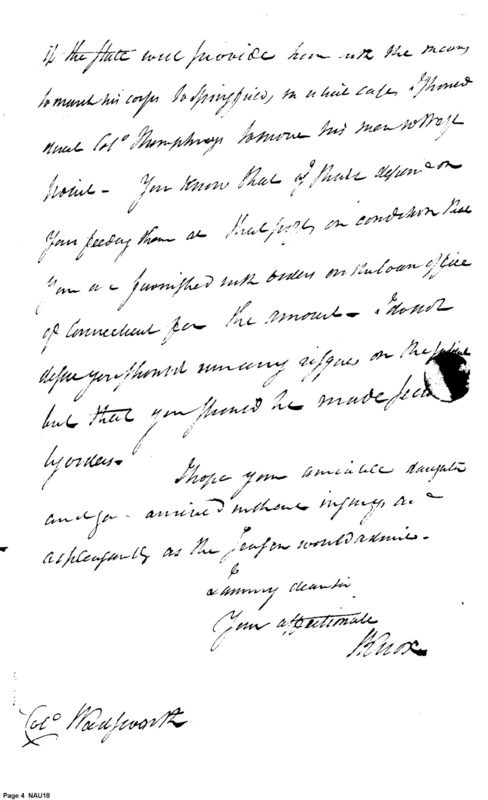 if the State will provide him with the means
to march his corps to Springfield, in which case I should
direct Colo Humphreys to move his men to that
point - You know that I shall depend on
your feeding them at that post, on condition that
you are furnished with orders on the loan office
of Connecticut for the amount - I do not
desire you should run any risques on the subject
but that you should be made secure
by orders.
I hope your amiable daughter
and you arrived without injury, and
as pleasantly as the season would admit.
I am my dear sir
Your affectionate
HKnox
Colo Wadsworth
Page 4 NAU18